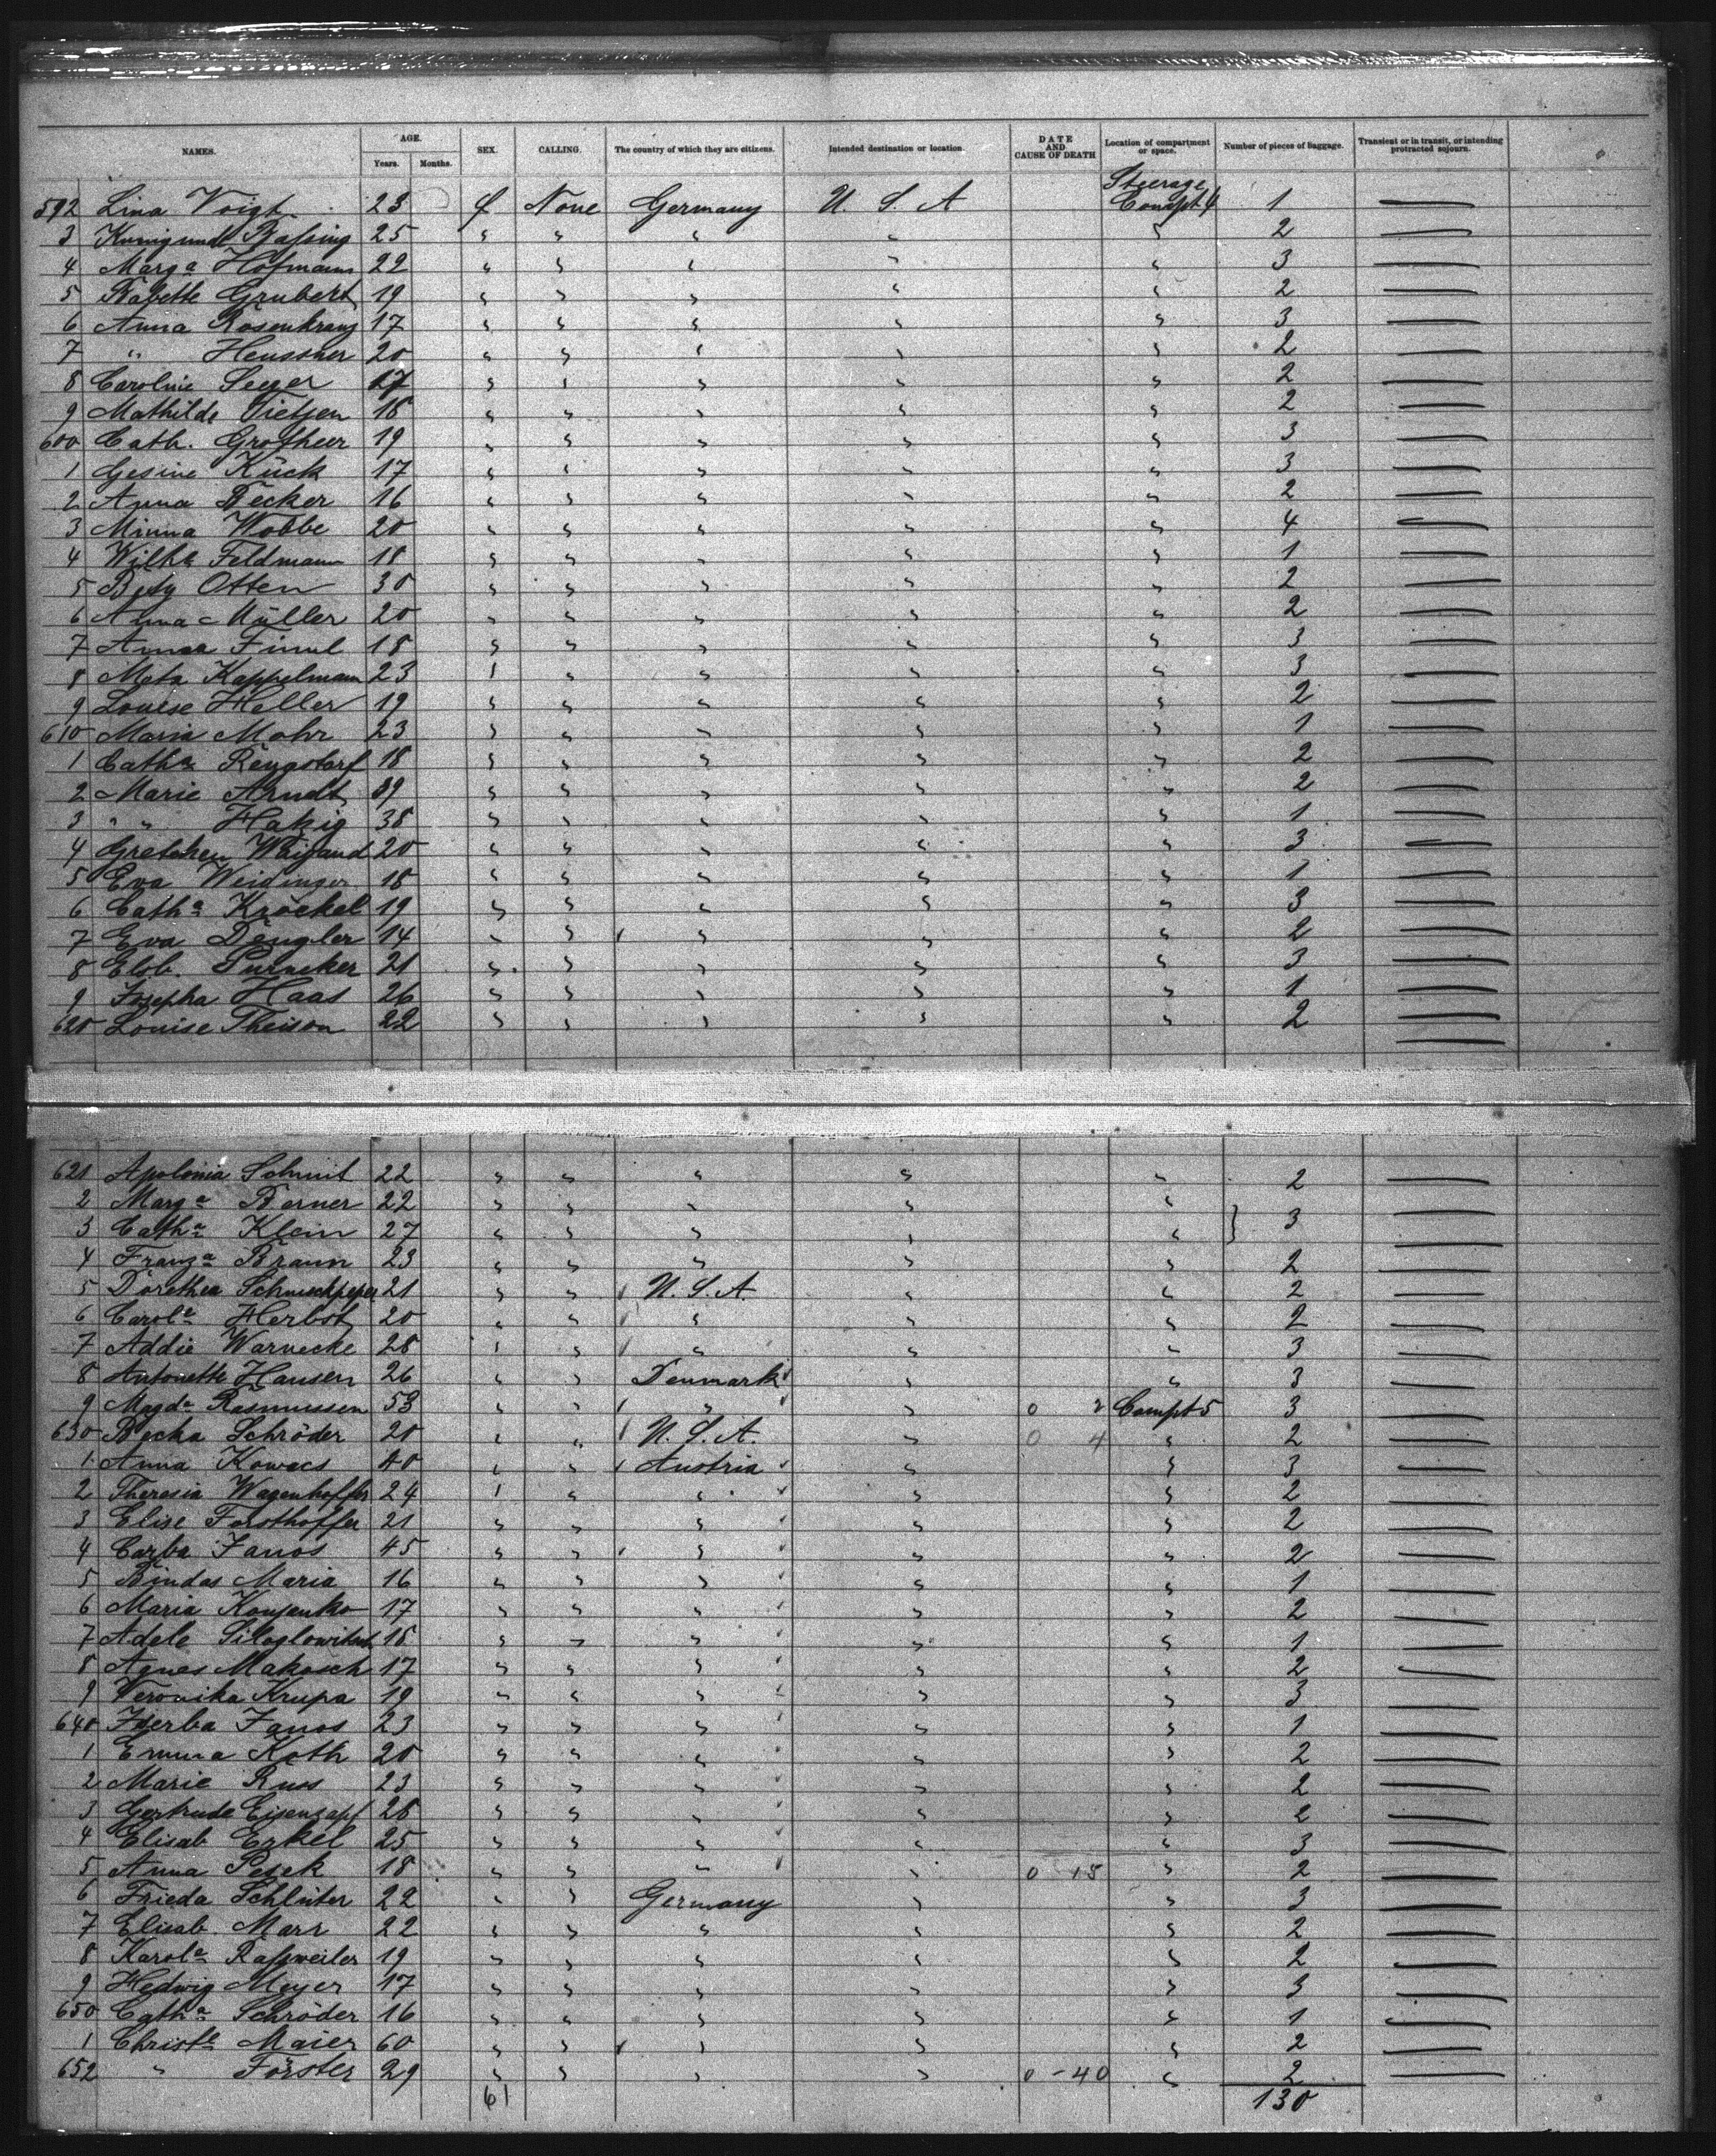 NAMES. AGE. Years. Months. SEX. CALLING. The country of which they are citizens. Intended destination or location. DATE AND CAUSE OF DEATH Location of compartment or space. Number of pieces of Baggage. Transient or in transit, or intending protracted sojourn.
592 Lina Voigt 23 f None Germany U. S. A Steerage Compt 4 1 —
3 Kunigunde Baßing 25 " " " " " 2 —
4 Marga Hofmann 22 " " " " " 3 —
5 Babette Grubert 19 " " " " " 2 —
6 Anna Rosenkranz 17 " " " " " 3 —
7 " Heussner 20 " " " " " 2 —
8 Caroline Seeger 17 " " " " " 2 —
9 Mathilde Tietjen 18 " " " " " 2 —
600 Cath. Grotheer 19 " " " " " 3 —
1 Gesine Kück 17 " " " " " 3 —
2 Anna Becker 16 " " " " " 2 —
3 Minna Wobbe 20 " " " " " 4 —
4 Wilha Feldmann 18 " " " " " 1 —
5 Bety Otten 30 " " " " " 2 —
6 Anna Müller 20 " " " " " 2 —
7 Anna 18 " " " " " 3 —
8 Meta Kappelmann 23 " " " " " 3 —
9 Louise Heller 19 " " " " " 2 —
610 Maria Mohr 23 " " " " " 1 —
1 Catha Rengstorf 18 " " " " " 2 —
2 Marie Arndt 39 " " " " " 2 —
3 " " Hakig 38 " " " " " 1 —
4 Gretchen Weigand 20 " " " " " 3 —
5 Eva Weidinger 18 " " " " " 1 —
6 Catha Kröckel 19 " " " " " 3 —
7 Eva Dengler 14 " " " " " 2 —
8 Elsb. Purucker 21 " " " " " 3 —
9 Josepha Haas 26 " " " " " 1 —
620 Louise Theison 22 " " " " " 2 —
621 Apolonia Schmit 22 " " " " " 2 —
2 Marga Berner 22 " " " " "
3 Catha Klein 27 " " " " " } 3 —
4 Franza Braun 23 " " " " " 2 —
5 Dorethea 21 " " U. S. A. " " 2 —
6 Carola Herbst 20 " " " " " 2 —
7 Addie Warnecke 28 " " " " " 3 —
8 Antonette Hansen 26 " " Denmark " " 3 —
9 Magda Rasmussen 53 " " " " 0 2 Compt 5 3 —
630 Becka Schröder 20 " " U. S. A. " 0 4 " 2 —
1 Anna Kowacs 40 " " Austria " " 3 —
2 Theresia Wagenhoffer 24 " " " " " 2 —
3 Elise Forsthoffer 21 " " " " " 2 —
4 Carba Janos 45 " " " " " 2 —
5 Bindas Maria 16 " " " " " 1 —
6 Maria 17 " " " " " 2 —
7 Adele 18 " " " " " 1 —
8 Agnes Makosch 17 " " " " " 2 —
9 Veronika Krupa 19 " " " " " 3 —
640 Janos 23 " " " " " 1 —
1 Emma Koth 20 " " " " " 2 —
2 Marie Russ 23 " " " " " 2 —
3 Gertrude Eisenzapf 28 " " " " " 2 —
4 Elisab Erkel 25 " " " " " 3 —
5 Anna Pesek 18 " " " " 0 15 " 2 —
6 Frieda Schlüter 22 " " Germany " " 3 —
7 Elisab. Marr 22 " " " " " 2 —
8 Karola Raßweiler 19 " " " " " 2 —
9 Hedwig Meyer 17 " " " " " 3 —
650 Catha Schröder 16 " " " " " 1 —
1 Christe Maier 60 " " " " " 2 —
652 " Förster 29 " " " " 0 - 40 " 2 —
61 130